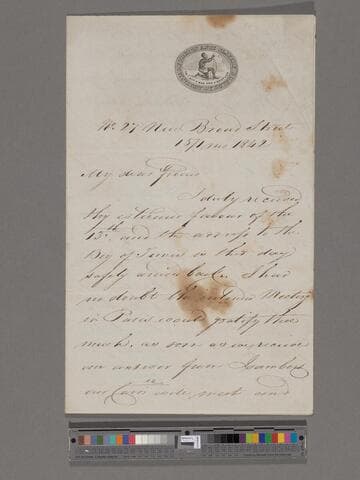 No 27 New Broad Street
15/1 mo 1842
My dear friend
I duly received
thy esteemed favour of the
13th and the address to the
Bey of Tunis on that day
safely arrived I had
no doubt the Meeting
in Paris would gratify thee
much, as soon as we receive
an answer from Isambert
our Com ee will meet and